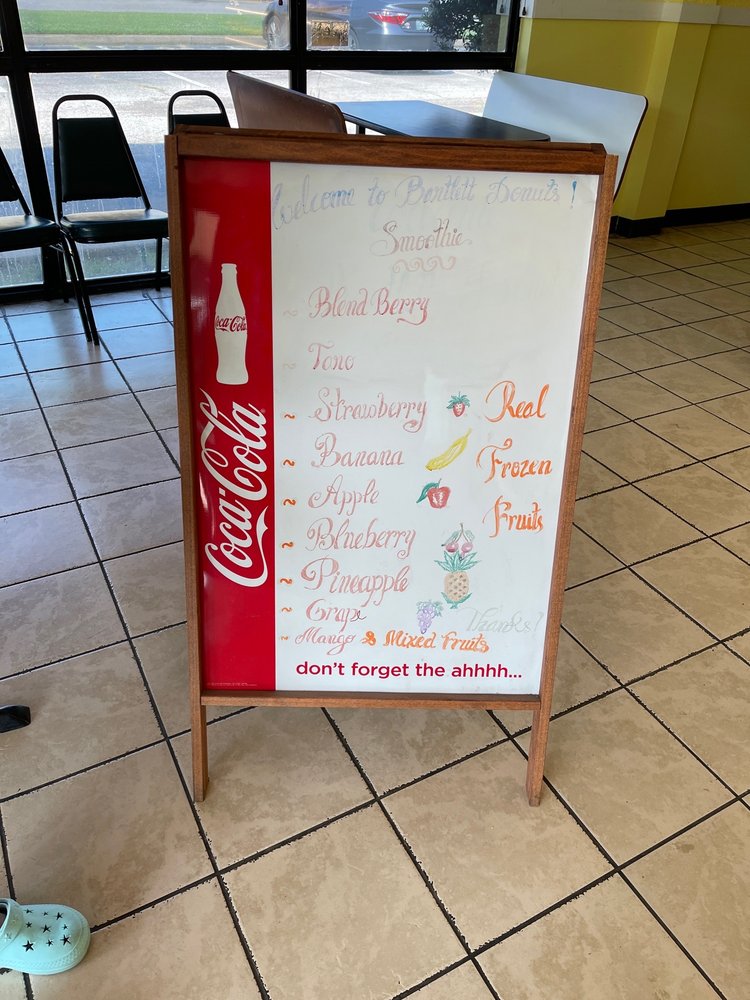 Welcome to Bartlett Donuts !
Smoothie
~ Blend Berry
~ Tono
~ Strawberry
~ Banana
~ Apple
~ Blueberry
~ Pineapple
~ Grape
~ Mango & Mixed Fruits
Real
Frozen
Fruits
Thanks!
don't forget the ahhhh...
Coca-Cola
Coca-Cola